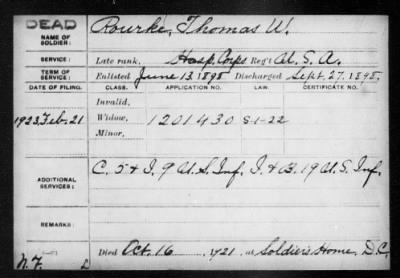 DEAD
NAME OF SOLDIER: Rourke, Thomas W.
SERVICE: Late rank, Hosp. Corps Reg't U.S.A.
TERM OF SERVICE: Enlisted June 13. 1898. Discharged Sept. 27. 1898.
DATE OF FILING. CLASS. APPLICATION NO. LAW. CERTIFICATE NO.
Invalid,
1923 Feb. 21 Widow, 1201430 S-1-22
Minor,
ADDITIONAL SERVICES: C. 5 & I. 9 U.S. Inf. I. & B. 19 U.S. Inf.
REMARKS:
Died Oct. 16, 1921, at Soldier's Home, D.C.